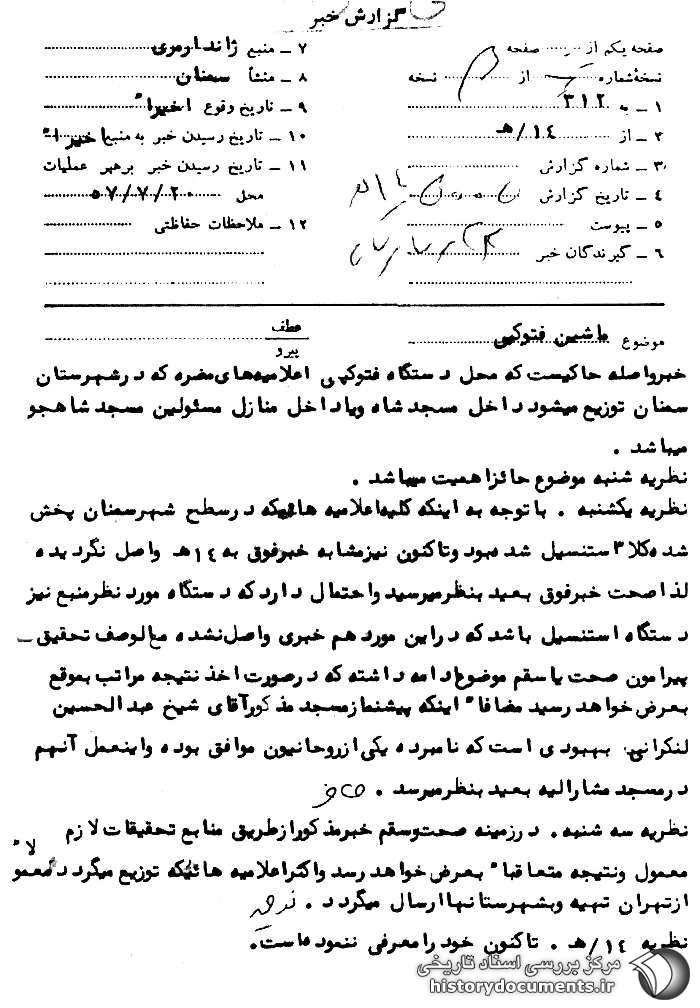 گزارش خبر
صفحه یکم از ........ صفحه
نسخهٔ شماره ........ از ........ نسخه
۱ – به ۳۱۲
۲ – از ۱۴/هـ
۳ – شماره گزارش
۴ – تاریخ گزارش
۵ – پیوست
۶ – گیرندگان خبر
۷ – منبع ژاندارمری
۸ – منشأ سمنان
۹ – تاریخ وقوع اخیراً
۱۰ – تاریخ رسیدن خبر به منبع اخیراً
۱۱ – تاریخ رسیدن خبر برهبر عملیات
محل ۵۷/۷/۲۰
۱۲ – ملاحظات حفاظتی
موضوع ماشین فتوکپی
عطف
پیرو
خبرواصله حاکیست که محل دستگاه فتوکپی اعلامیه‌های مضره که درشهرستان
سمنان توزیع میشود داخل مسجد شاه ویاداخل منازل مسئولین مسجد شاهجو
میباشد .
نظریه شنبه موضوع حائزاهمیت میباشد .
نظریه یکشنبه . باتوجه به اینکه کلیه‌اعلامیه هائیکه درسطح شهرسمنان پخش
شده‌کلا" استنسیل شده‌بود وتاکنون نیزمشابه خبرفوق به ۱۴هـ واصل نگردیده
لذاصحت خبرفوق بعید بنظرمیرسید واحتمال داردکه دستگاه مورد نظرمنبع نیز
دستگاه استنسیل باشدکه دراین موردهم خبری واصل‌نشده مع‌الوصف تحقیق –
پیرامون صحت یاسقم موضوع‌ادامه داشته که درصورت اخذ نتیجه مراتب بموقع
بعرض خواهد رسید مضافا" اینکه پیشنمازمسجد مذکورآقای شیخ عبدالحسین
لنکرانی بهبودی است که نامبرده یکی‌ازروحانیون موافق بوده واینعمل آنهم
درمسجد مشارالیه بعید بنظرمیرسد .
نظریه سه شنبه. درزمینه صحت‌وسقم خبرمذکورازطریق منابع تحقیقات لازم
معمول ونتیجه متعاقبا" بعرض خواهد رسد واکثراعلامیه هائیکه توزیع میگردد معمولا"
ازتهران تهیه وبشهرستانهاارسال میگردد .
نظریه ۱۴/هـ . تاکنون خود رامعرفی ننموده‌است.
مرکز بررسی اسناد تاریخی
historydocuments.ir